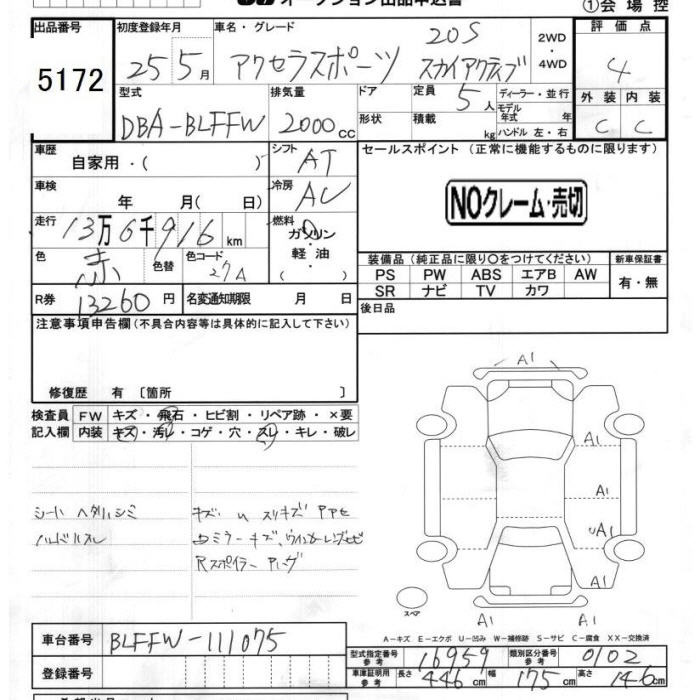 オークション出品申込書 ①会場控
出品番号 初度登録年月 車名・グレード 評価点
5172 25年5月 アクセラスポーツ 20S スカイアクティブ 2WD・4WD 4
型式 排気量 ドア 定員 ディーラー・並行 外装 内装
DBA-BLFFW 2000cc 形状 積載 5人 kg モデル年式 年 ハンドル 左・右 C C
車歴 自家用・( ) シフト AT セールスポイント (正常に機能するものに限ります)
車検 年 月( 日) 冷房 AC NOクレーム・売切
走行 13万6千916km 燃料 ガソリン・軽油・( )
色 赤 色替 色コード 27A 装備品 (純正品に限り○をつけてください) 新車保証書
PS PW ABS エアB AW 有・無
SR ナビ TV カワ
R券 13260円 名変通知期限 月 日 後日品
注意事項申告欄 (不具合内容等は具体的に記入して下さい)
修復歴 有 〔箇所 〕
検査員 FW キズ・飛石・ヒビ割・リペア跡・×要
記入欄 内装 キズ・汚レ・コゲ・穴・スレ・キレ・破レ
シート ヘタリ シミ
ハンドルスレ
キズ U スリキズ
ミラーキズ、ウインカーレンズ
Rスポイラー
A1
A1
A1
UA1
A1
A1 A1
スペア
A-キズ E-エクボ U-凹み W-補修跡 S-サビ C-腐食 XX-交換済
車台番号 BLFFW-111075
登録番号
型式指定番号 参考 16959 類別区分番号 参考 0102
車庫証明用 参考 長さ 446cm 幅 175cm 高さ 146cm